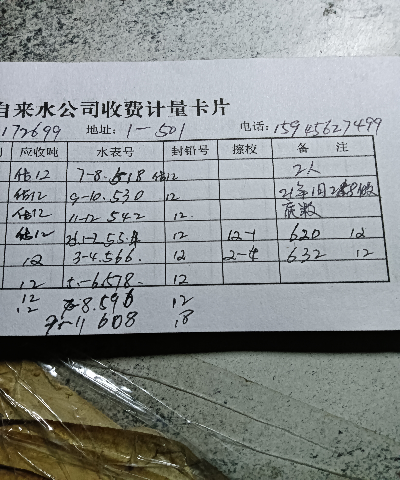 自来水公司收费计量卡片
172699 地址: 1-501 电话: 15945627499
应收吨 水表号 封铅号 擦校 备 注
估12 7-8. 518 估12 2人
估12 9-10. 530 12 21年1月2
估12 11-12 542 12. 底数
估12 1-2 554 12 12-1 620 12
12 3-4. 566. 12 2-4 632 12
12 5-6. 578. 12
12 7-8. 596 12
12 9-11 608 18